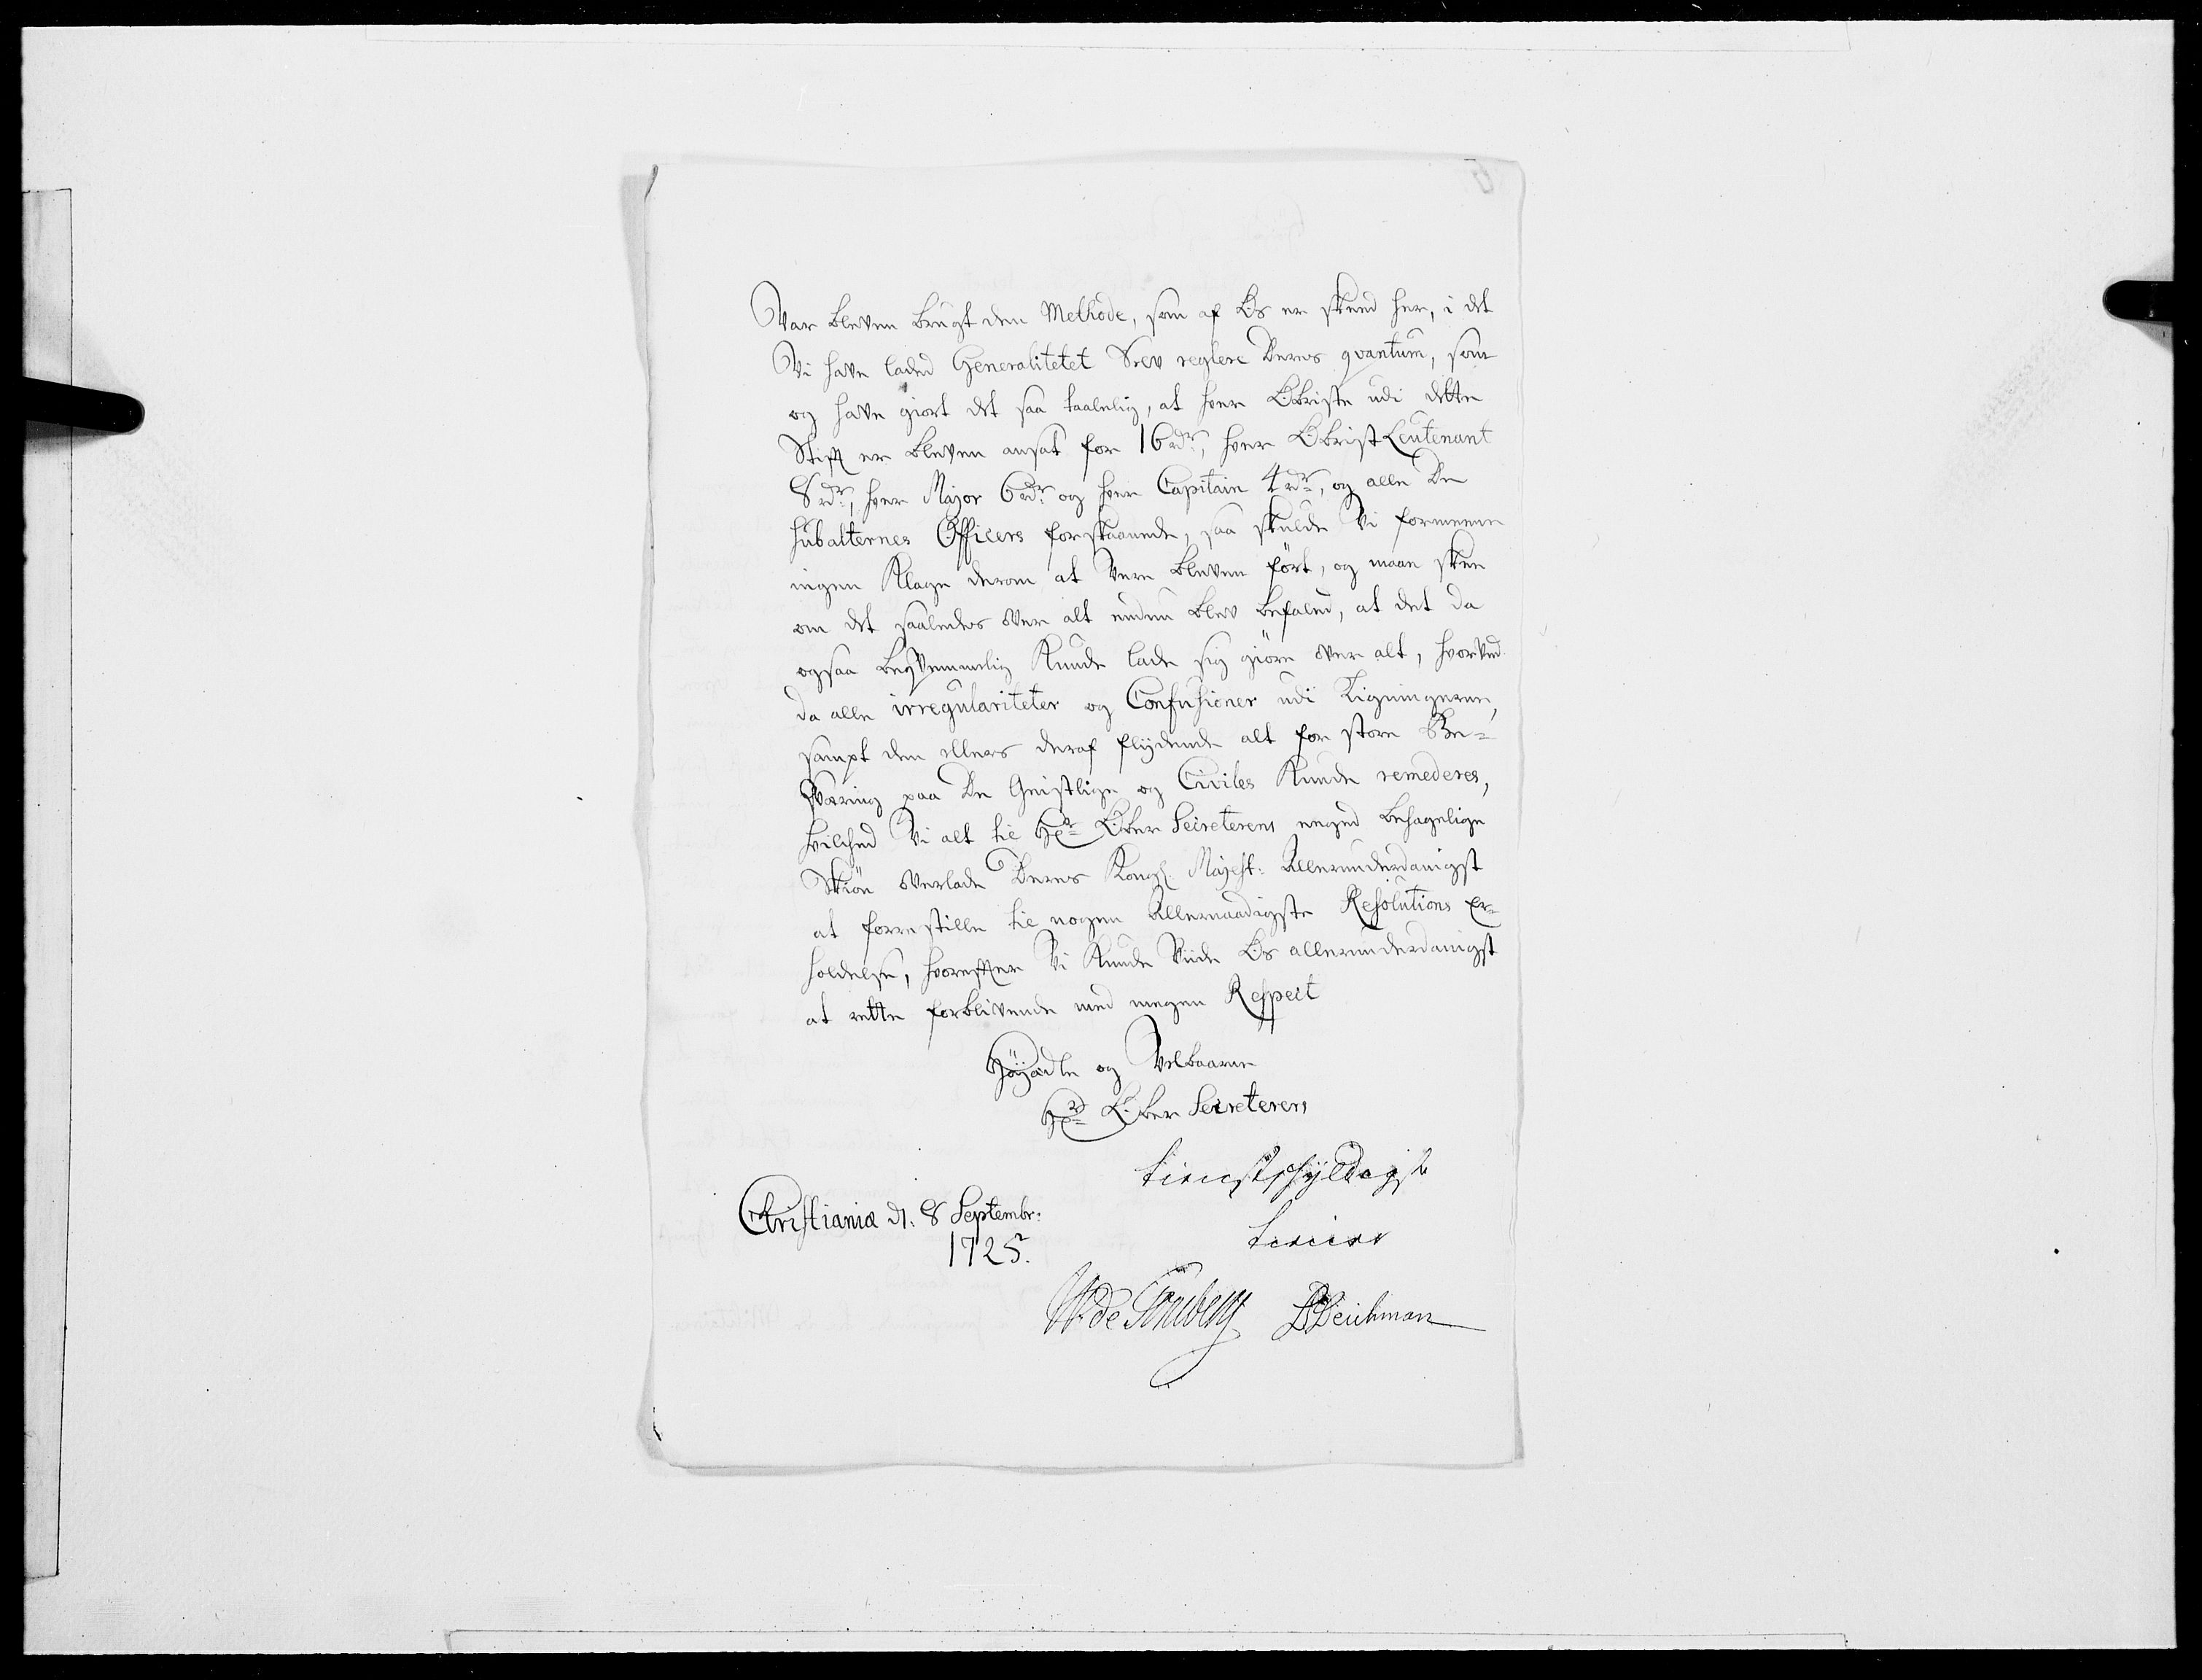 Var bleven brugt den Methode, som af Os er skeed her, i det
Vi have laded Generalitetet Selv reglere Deres qvantum, som
og have giort det saa taalelig, at hver Obriste udi dette
Stift er bleven ansat for 16 rdr, hver Obrist Leutenant
8 rdr, hver Major 6 rdr og hver Capitain 4 rdr, og alle De
Subalternes Officers forskaanede, saa skulde Vi formeene
ingen Klage derom at Vere bleven fört, og maae skee
om det saaledes over alt endnu blev befaled, at det da
ogsaa beqvemmelig Kunde lade sig giöre over alt, hvorved
da alle irregulariteter og Confusioner udi Ligningerne,
sampt den ellers deraf flydende alt for store Be=
sværing paa De Geistlige og Civiles Kunde remederes,
hvilched Vi alt til Hr Ober Secreterens meged behagelige
Skiön overlade Deres Kongl: Majest: Allerunderdanigst
at forrestille til nogen Allernaadigste Resolutions Er=
holdelse, hvorefter Vi Kunde Viide Os allerunderdanigst
at rette forblivende med megen Respect
Höyædle og Velbaarne
Hr Ober Secreterens
tienstskyldigste
tienere
Christiania d: 8 Septembr:
1725.
W. de Tonsberg BDeichman